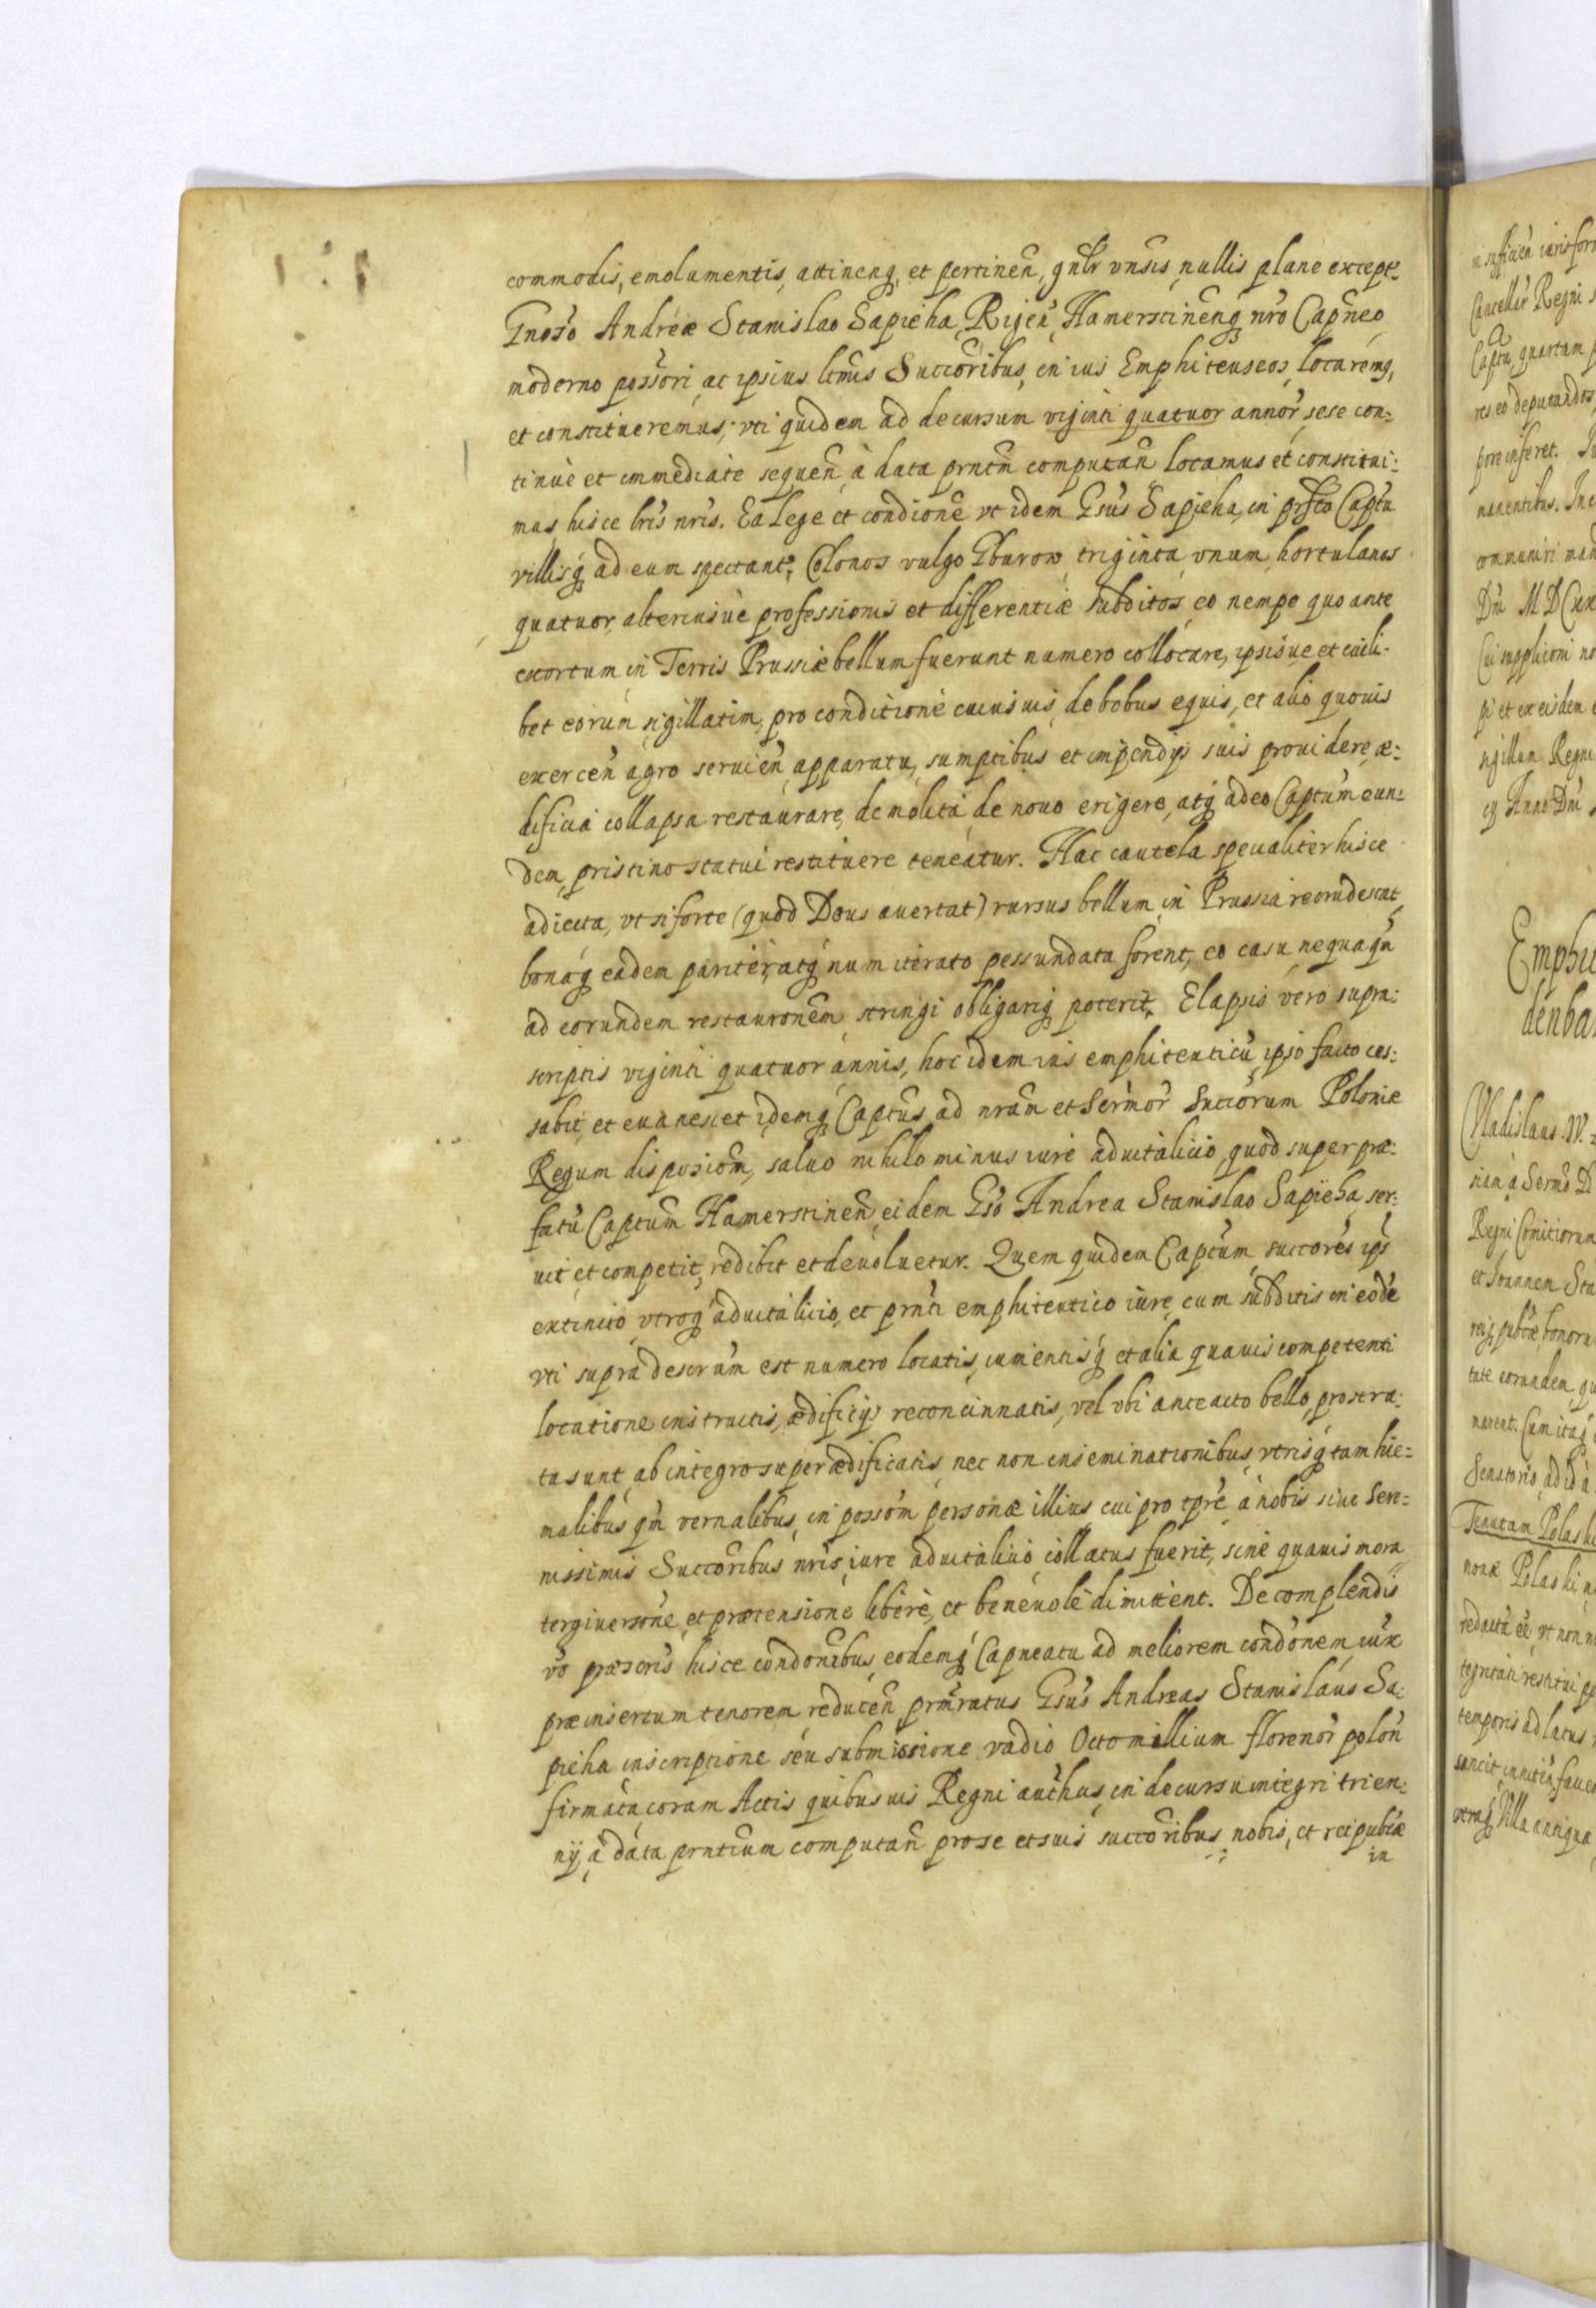 commodis, emolumentis, attineng, et pertineñ, gñlr vnsis, nullis plane except
Gnoso Andreæ Stanislao Sapieha, Rigeñ, Hamerstinenq nro Capneo
moderno possori, ac ipsius ltmis Succoribus, in ius Emphiteuseos, locaremq,
et constitueremus; vti quidem ad decursum viginti quatuor annor, sese con:
tinuè et immediate sequeñ, à data prntm computañ locamus et constitui:
mus hisce lris nris. Ea lege et condione vt idem Gsus Sapieha, in prfto Captu
villisq ad eum spectant, Colonos vulgo Gburow, triginta vnum, hortulanos
quatuor, alteriusuè professionis et differentiæ subditos, eo nempe quo ante
exortum in Terris Prussiæ bellum fuerunt numero collocare, ipsisue et cuili-
bet eorum sigillatim, pro conditione cuiusuis, de bobus equis, et alio quouis
exerceñ agro seruieñ apparatu, sumptibus et impendijs suis prouidere, æ:
dificia collapsa restaurare, demolita de nouo erigere, atq adeo Captum eun:
dem, pristino statui restituere teneatur. Hac cautela specialiter hisce
adiecta, vt si forte (quod Deus auertat) rursus bellum in Prussia recrudescat
bonaq eadem pariter, atq num iterato pessundata forent, eo casu nequaqm
ad eorundem restauronem stringi obligariq poterit. Elapsis vero supra:
scriptis viginti quatuor annis, hoc idem ius emphiteuticu, ipso facto ces:
sabit, et euanescet, idemq Captus ad nram et Sermor Succorum Poloniæ
Regum disposiom, saluo nihilominus iure aduitalicio, quod super præ:
fatu Captum Hamerstineñ, eidem Gso Andrea Stanislao Sapieha, ser:
uit et competit, redibit et deuoluetur. Quem quidem Captum, succores ips
extincto vtroq aduitalicio, et prnti emphiteutico iure, cum subditis in eode
vti supra descrum est numero locatis, iumentisq et alia quauis competenti
locatione instructis, ædificijs reconcinnatis, vel vbi anteacto bello, prostra:
ta sunt, ab integro superædificatis, nec non inseminationibus, vtrisq tam hie:
malibus qm vernalibus, in possom personæ illius cui pro tpre à nobis siue Sere:
nissimis Succoribus nris, iure aduitalicio collatus fuerit, sine quauis mora
tergiuersone, et prætensione liberè, et beneuolè dimittent. De complendis
vo præscris hisce condonibus, eodemq Capneatu ad meliorem condonem iux
præinsertum tenorem reduceñ prmratus Gsus Andreas Stanislaus Sa:
pieha inscriptione seu submissione vadio Octo millium florenor poloñ
firmata, coram Actis quibusuis Regni authcis, in decursu integri trien:
nij, à data prntium computañ pro se et suis succoribus, nobis, et reipublæ
in